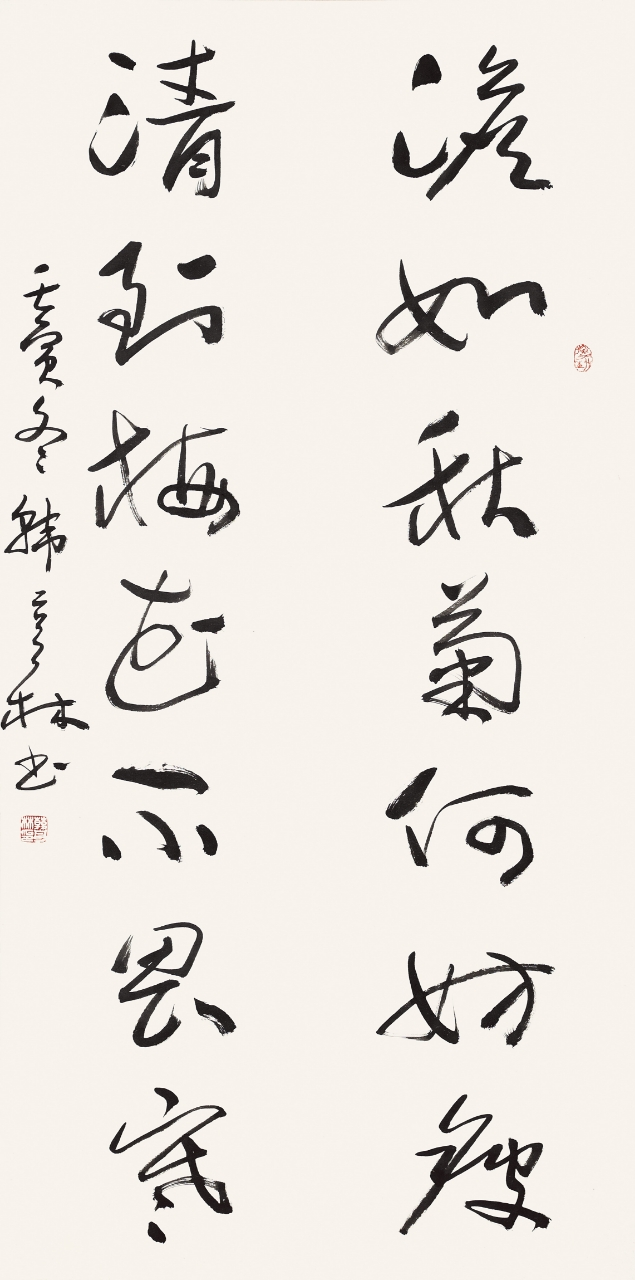 澹如秋菊何妨瘦
清到梅花不畏寒
壬寅冬冬韩亨林书